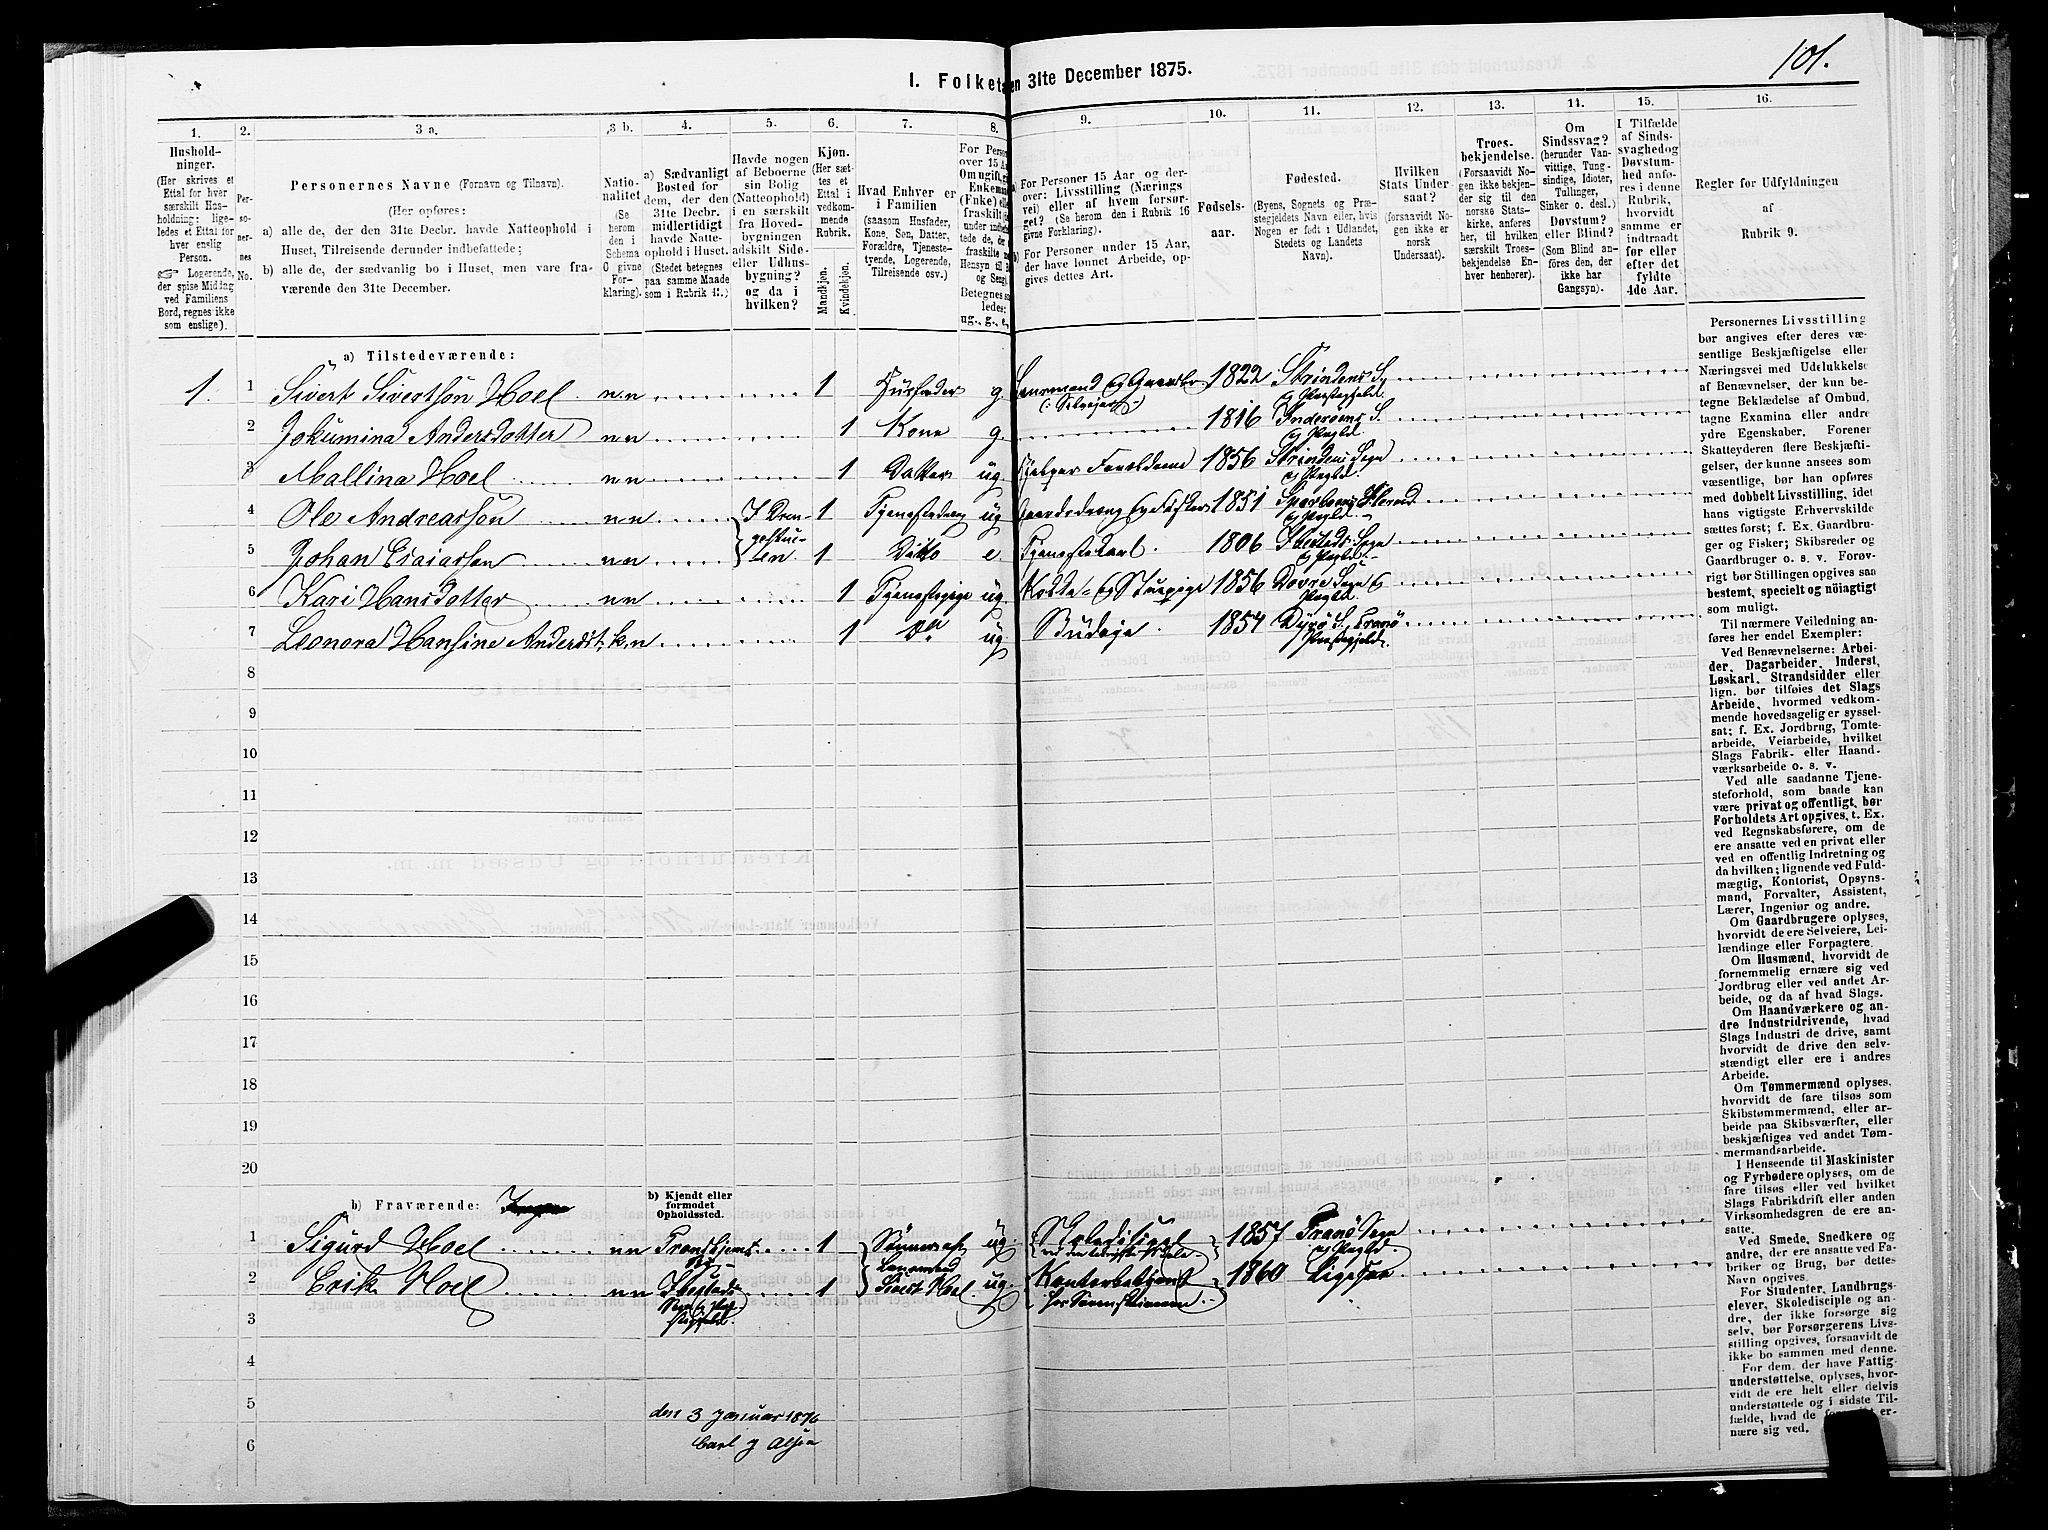 101.
I. Folket en 31te December 1875.
1. 2. 3 a. 3 b. 4. 5. 6. 7. 8. 9. 10. 11. 12. 13. 14. 15. 16.
Hushold-
ninger.
(Her skrives et
Ettal for hver
særskilt Hus-
holdning; lige-
ledes et Ettal for
hver enslig
Person.
☞ Logerende,
der spise Middag
ved Familiens
Bord, regnes ikke
som enslige).
Per-
so-
ner-
nes
No.
Personernes Navne (Fornavn og Tilnavn).
(Her opføres:
a) alle de, der den 31te Decbr. havde Natteophold i
Huset, Tilreisende derunder indbefattede;
b) alle de, der sædvanlig bo i Huset, men vare fra-
værende den 31te December.
Natio-
nalitet
(Se
herom
den i
Schema
6 givne
For-
klaring).
a) Sædvanligt
Bosted for
dem, der den
31te Decbr.
midlertidigt
havde Natte-
ophold i Huset.
(Stedet betegnes
paa samme Maade
som i Rubrik 11.)
Havde nogen
af Beboerne
sin Bolig
(Natteophold)
i en særskilt
fra Hoved-
bygningen
adskilt Side-
eller Udhus-
bygning?
og da i
hvilken?
Kjøn.
(Her sæt-
tes et
Ettal i
vedkom-
mende
Rubrik.
Mandkjøn.
Kvindekjøn.
Hvad Enhver er
i Familien
(saasom Husfader,
Kone, Søn, Datter,
Forældre, Tjeneste-
tyende, Logerende,
Tilreisende osv.)
For Person
over 15 Aa
Om ugift, g
Enkeman
(Enke) elle
fraskilt
Betegnes s
ledes:
ug., g., e.,
a) For Personer 15 Aar og der-
over: Livsstilling (Nærings
vei) eller af hvem forsør-
get? (Se herom den i Rubrik 16
givne Forklaring).
b) For Personer under 15 Aar,
der have lønnet Arbeide, op-
gives dettes Art.
Fødsels-
aar.
Fødested.
(Byens, Sognets og Præ-
stegjeldets Navn eller, hvis
Nogen er født i Udlandet,
Stedets og Landets
Navn).
Hvilken
Stats Under-
saat?
(forsaavidt No-
gen ikke er
norsk
Undersaat).
Troes-
bekjendelse.
(Forsaavidt No-
gen ikke bekjen-
der sig til den
norske Stats-
kirke, anføres
her, til hvilken
særskilt Troes-
bekjendelse En-
hver henhører).
Om
Sindssvag?
(herunder Van-
vittige, Tung-
sindige, Idioter,
Tullinger,
Sinker o. desl.)
Døvstum?
eller Blind?
(Som Blind an-
føres den, der
ikke har
Gangsyn).
I Tilfælde
af Sinds-
svaghed og
Døvstum-
hed anfø-
res i denne
Rubrik,
hvorvidt
samme er
indtraadt
før eller
efter det
fyldte
4de Aar.
Regler for Udfyldningen
af
Rubrik 9.
a) Tilstedeværende:
1. 1 Sivert Sivertsøn Hoel n.n 1 Husfader g. Lensmand og Gaardbr (: Selveier :) 1822 Strindens S. og Præstegjeld
2 Jokumina Andersdotter nn 1 Kone g. 1816 Inderøens S. og Prgld.
3 Mallina Hoel nn 1 Datter ug Hjelper Forældrene 1856 Strindens Sogn og Prgld.
4 Ole Andreassøn n.n I Dren- 1 Tjenestedreng ug Gaardsdreng og Fisker 1851
5 Johan Esaiassen n.n gestu- en. 1 Ditto e Tjenestekarl. 1806 Ibestads Sogn og Prgld.
6 Kari Hansdotter nn 1 Tjenestepige ug Kokke- og Stuepige 1856 Dovre Sogn og Prgld.
7 Leonora Hansine Andersdt. k.n 1 Do ug Budeie. 1854 Dyrø S., Tranø Præstegjeld.
8
9
10
11
12
13
14
15
16
17
18
19
20
b) Fraværende:
b) Kjendt eller
formodet
Opholdssted.
1 Sigurd Hoel nn 1 Sønner af ug. 1857 Tranø Sogn og Prgld.
2 Erik Hoel nn Ibestads Sogn og Præstegjeld. 1 Lensmand Sivert Hoel ug. Kontorbetjent hos Sorenskriveren. 1860 Ligesaa
3
4
5
6
den 3 Januar 1876
Carl J Olsen
Personernes Livsstilling
bør angives efter deres væ-
sentlige Beskjæftigelse eller
Næringsvei med Udelukkelse
af Benævnelser, der kun be-
tegne Beklædelse af Ombud,
tagne Examina eller andre
ydre Egenskaber. Forener
Skatteyderen flere Beskjæfti-
gelser, der kunne ansees som
væsentlige, bør han opføres
med dobbelt Livsstilling, idet
hans vigtigste Erhvervskilde
sættes først; f. Ex. Gaardbru-
ger og Fisker; Skibsreder og
Gaardbruger o. s. v. Forøv-
rigt bør Stillingen opgives saa
bestemt, specielt og nøiagtigt
som muligt.
Til nærmere Veiledning an-
føres her endel Exempler:
Ved Benævnelserne: Arbei-
der, Dagarbeider, Inderst,
Løskarl, Strandsidder eller
lign. bør tilføies det Slags
Arbeide, hvormed vedkom-
mende hovedsagelig er syssel-
sat; f. Ex. Jordbrug, Tomte-
arbeide, Veiarbeide, hvilket
Slags Fabrik- eller Haand-
værksarbeide o. s. v.
Ved alle saadanne Tjene-
steforhold, som baade kan
være privat og offentligt, bør
Forholdets Art opgives, t. Ex.
ved Regnskabsførere, om de
ere ansatte ved en privat eller
ved en offentlig Indretning og
da hvilken; lignende ved Fuld-
mægtig, Kontorist, Opsyns-
mand, Forvalter, Assistent,
Lærer, Ingeniør og andre.
Om Gaardbrugere oplyses,
hvorvidt de ere Selveiere, Lei-
lændinge eller Forpagtere.
Om Husmænd, hvorvidt de
fornemmelig ernære sig ved
Jordbrug eller ved andet Ar-
beide, og da af hvad Slags.
Om Haandværkere og an-
dre Industridrivende, hvad
Slags Industri de drive, samt
hvorvidt de drive den selv-
stændigt eller ere i andres
Arbeide.
Om Tømmermænd oplyses,
hvorvidt de fare tilsøs som
Skibstømmermænd, eller ar-
beide paa Skibsværfter, eller
beskjæftiges ved andet Tøm-
mermandsarbeide.
I Henseende til Maskinister
og Fyrbødere oplyses, om de
fare tilsøs eller ved hvilket
Slags Fabrikdrift eller anden
Virksomhedsgren de ere an-
satte.
Ved Smede, Snedkere og
andre, der ere ansatte ved Fa-
briker og Brug, bør dettes
Navn opgives.
For Studenter, Landbrugs-
elever, Skoledisciple og an-
dre, der ikke forsørge sig
selv, bør Forsørgerens Livs-
stilling opgives, forsaavidt de
ikke bo sammen med denne.
For dem, der have Fattig-
understøttelse, oplyses, hvor-
vidt de ere helt eller delvis
understøttede og i sidste Til-
fælde, hvad de er-
nære sig ved.